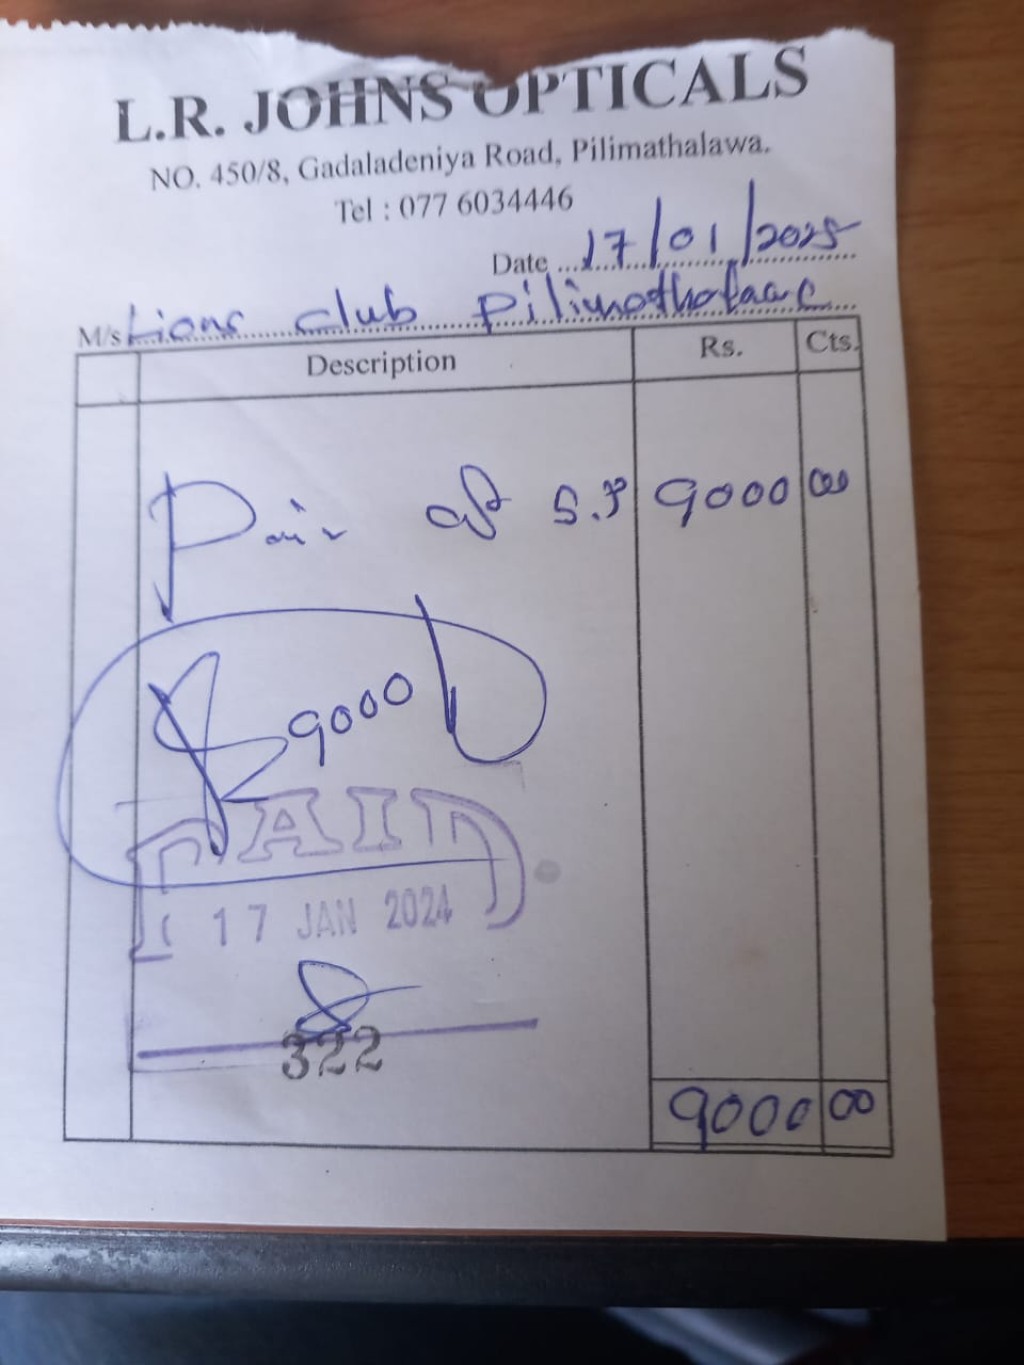 L.R. JOHNS OPTICALS
NO. 450/8, Gadaladeniya Road, Pilimathalawa.
Tel : 077 6034446
Date 17/01/2025
M/s Lions club
Description Rs. Cts.
Pair of S.P 9000 00
9000
PAID
17 JAN 2024
322
9000 00